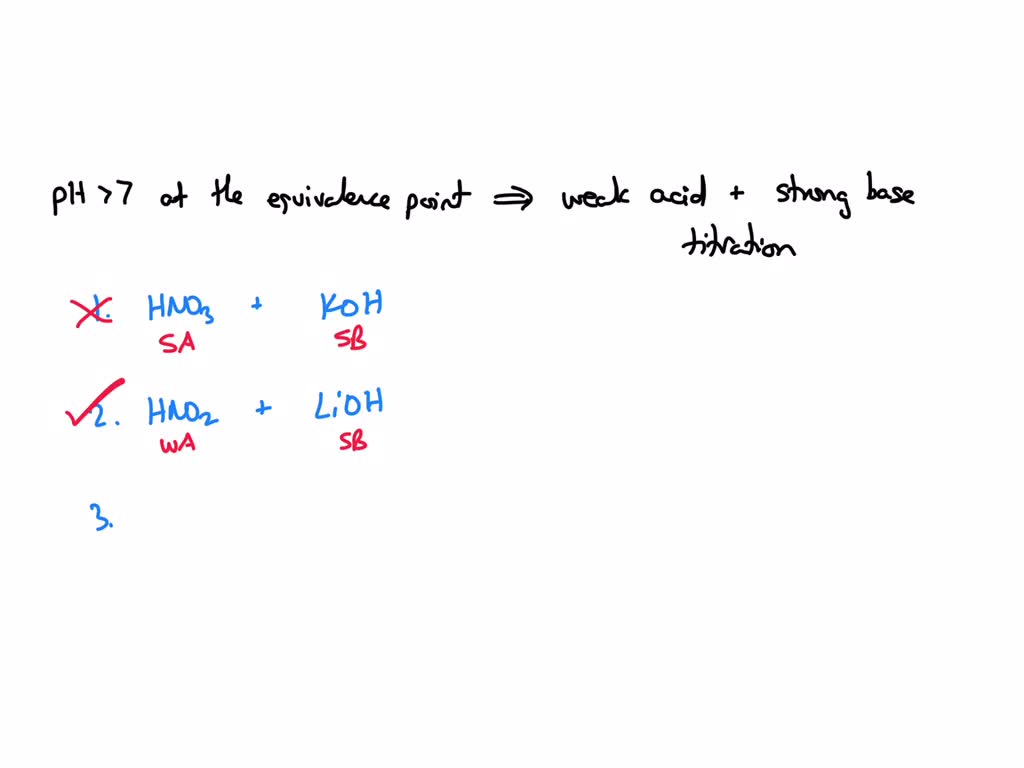 pH >7 at the equivalence point ⇒ weak acid + strong base
titration
1. HNO3 + KOH
SA SB
2. HNO2 + LiOH
WA SB
3.